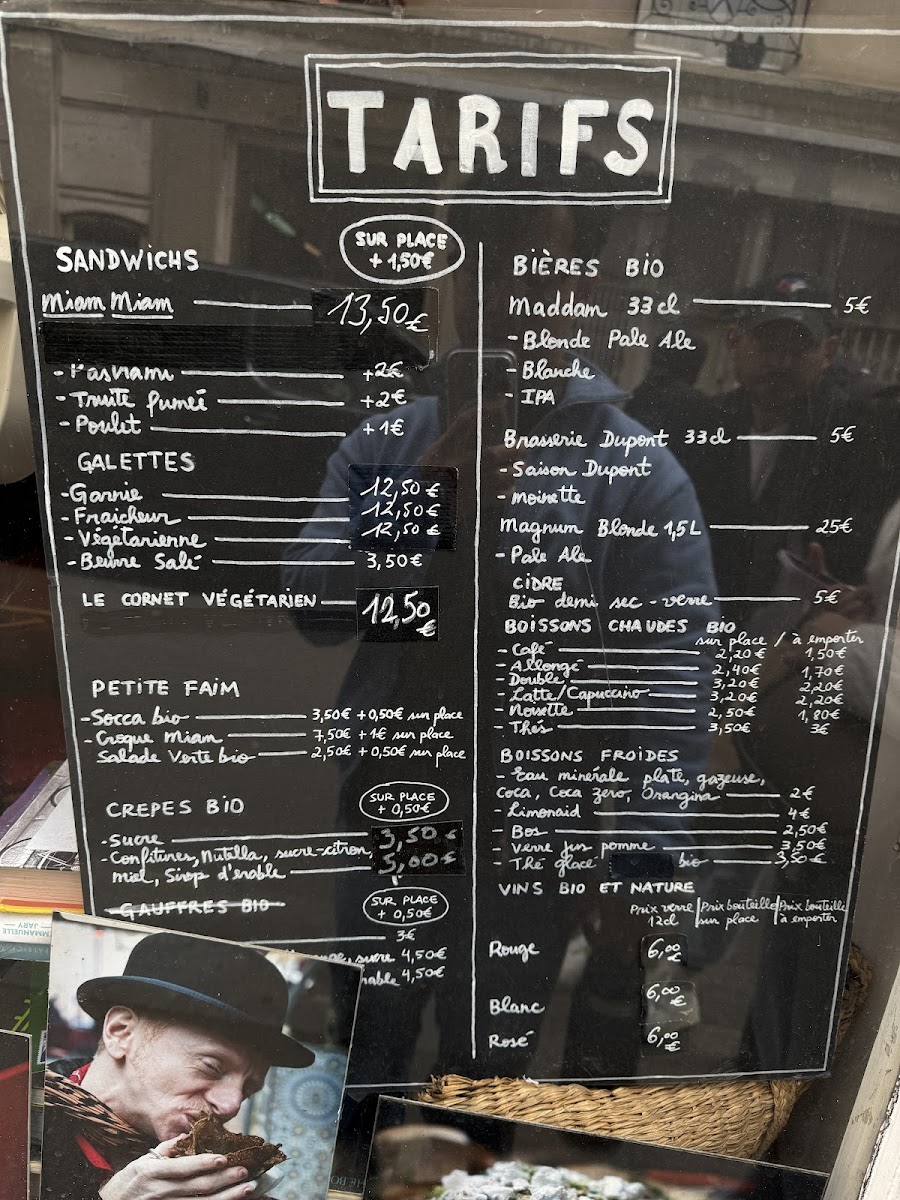 TARIFS
SANDWICHS
SUR PLACE
+ 1,50€
Miam Miam 13,50€
- Pastrami +2€
- Truite fumeé +2€
- Poulet +1€
GALETTES
- Garnie 12,50€
- Fraicheur 12,50€
- Végétarienne 12,50€
- Beurre Salé 3,50€
LE CORNET VÉGÉTARIEN 12,50€
PETITE FAIM
- Socca bio 3,50€ + 0,50€ sur place
- Croque Miam 7,50€ + 1€ sur place
Salade Verte bio 2,50€ + 0,50€ sur place
CREPES BIO
SUR PLACE
+ 0,50€
- Sucre 3,50€
- Confitures, Nutella, sucre-citron, 5,00€
miel, Sirop d'érable
GAUFFRES BIO
SUR PLACE
+ 0,50€
3€
sucre 4,50€
4,50€
BIÈRES BIO
Maddam 33cl 5€
- Blonde Pale Ale
- Blanche
- IPA
Brasserie Dupont 33cl 5€
- Saison Dupont
- Moinette
Magnum Blonde 1,5L 25€
- Pale Ale
CIDRE
Bio demi sec - verre 5€
BOISSONS CHAUDES BIO
sur place / à emporter
- Café 2,20€ 1,50€
- Allongé 2,40€ 1,70€
- Double 3,20€ 2,20€
- Latte/Capuccino 3,20€ 2,20€
- Noisette 2,50€ 1,80€
- Thés 3,50€ 3€
BOISSONS FROIDES
- Eau minérale plate, gazeuse,
Coca, Coca zero, Orangina 2€
- Limonaid 4€
- Bos 2,50€
- Verre jus pomme 3,50€
- Thé glacé bio 3,50€
VINS BIO ET NATURE
Prix verre 12cl | Prix bouteille sur place | Prix bouteille à emporter
Rouge 6,00€
Blanc 6,00€
Rosé 6,00€
EMMANUELLE
JARY